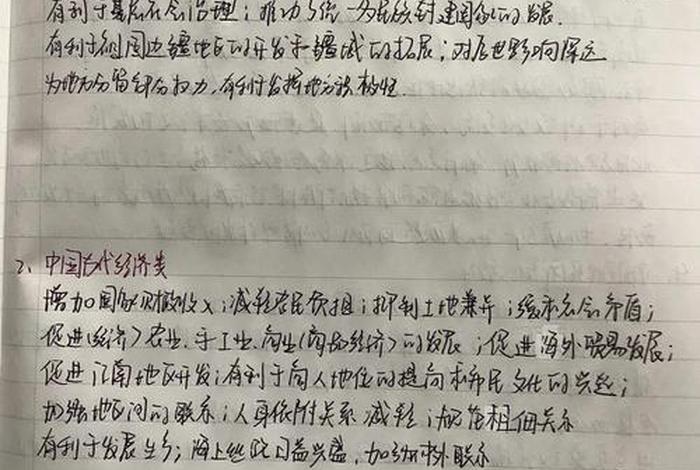 有利于基层社会治理；推动了统一多民族封建国家的发展.
有利于祖国边疆地区的开发和疆域的拓展；对后世影响深远
为地方分留部分权力,有利于发挥地方积极性.
2、中国古代经济类
增加国家财政收入;减轻农民负担;抑制土地兼并;缓和社会矛盾;
促进(经济)农业.手工业.商业(商品经济)的发展;促进海外贸易发展;
促进江南地区开发;有利于商人地位的提高和市民文化的兴起;
加强地区间的联系;人身依附关系减轻;规范租佃关系
有利于发展生产;海上丝路日益兴盛,加强对外联系